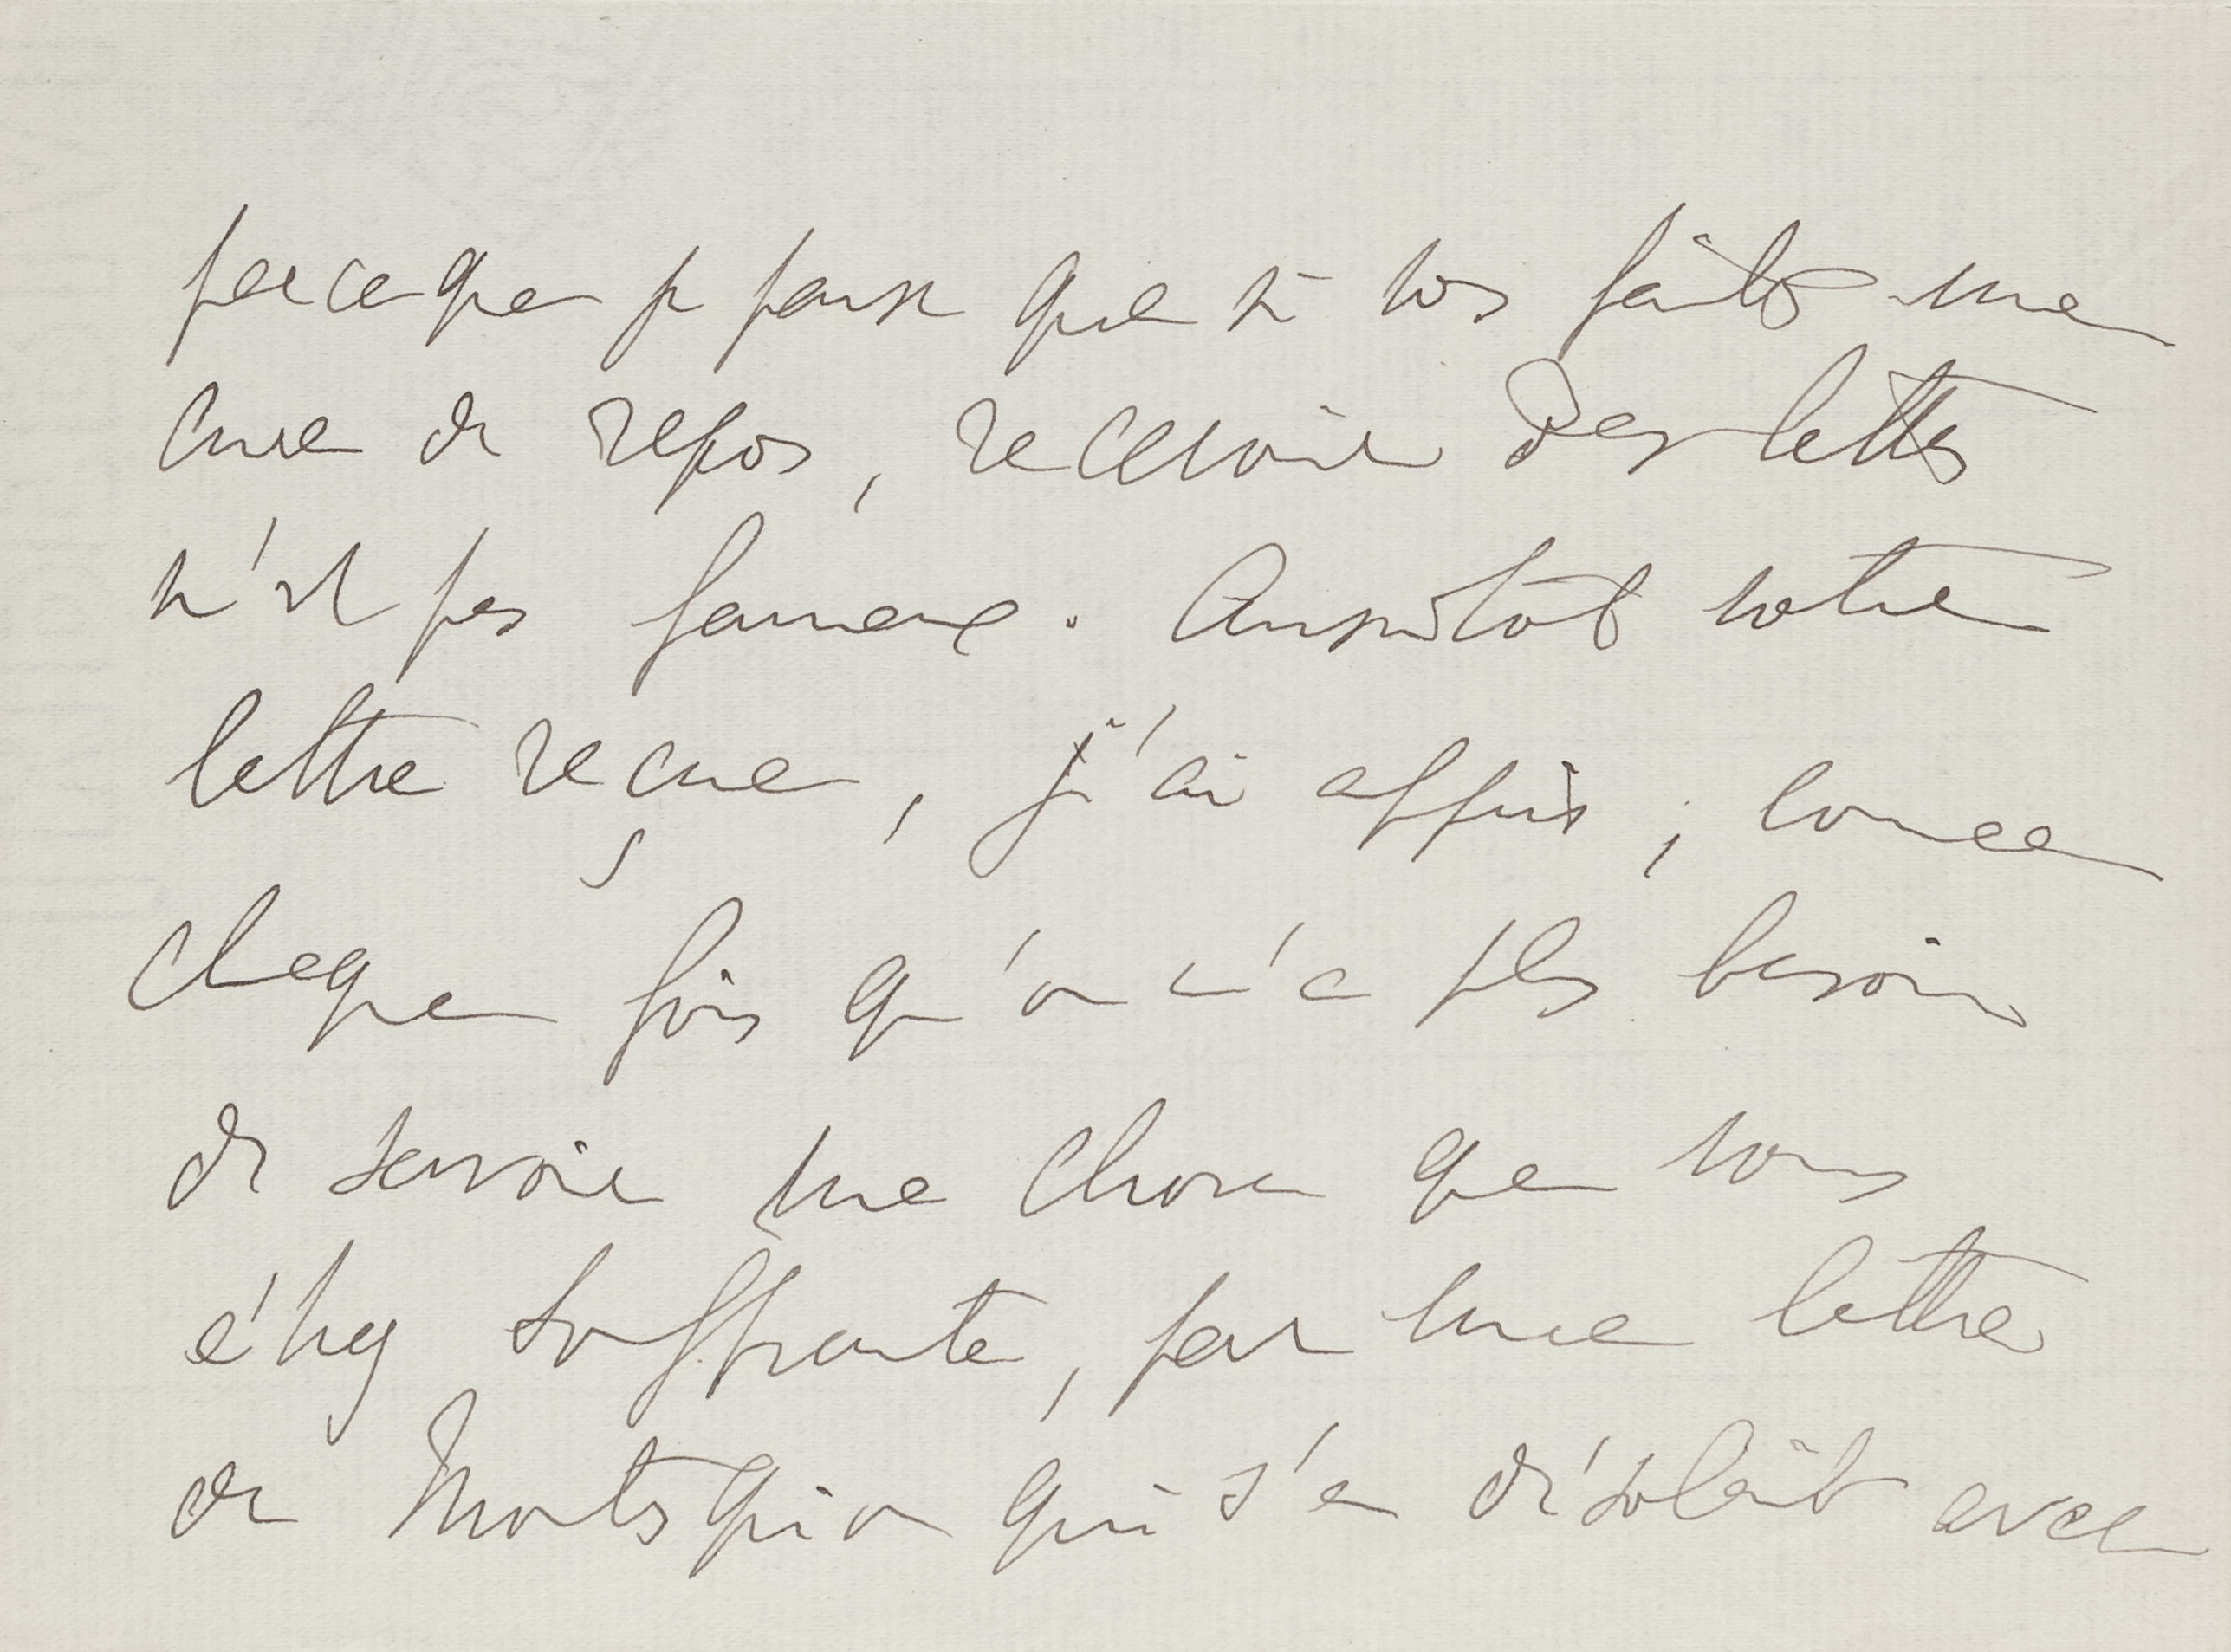 parceque je pense que si vous faites une
cure de repos, recevoir des lettres
n'est pas fameux. Aussitôt votre
lettre reçue, j'ai appris, comme
chaque fois qu'on n'a plus besoin
de savoir une chose que vous
étiez souffrante, par une lettre
de Montesquiou qui s'en désolait avec